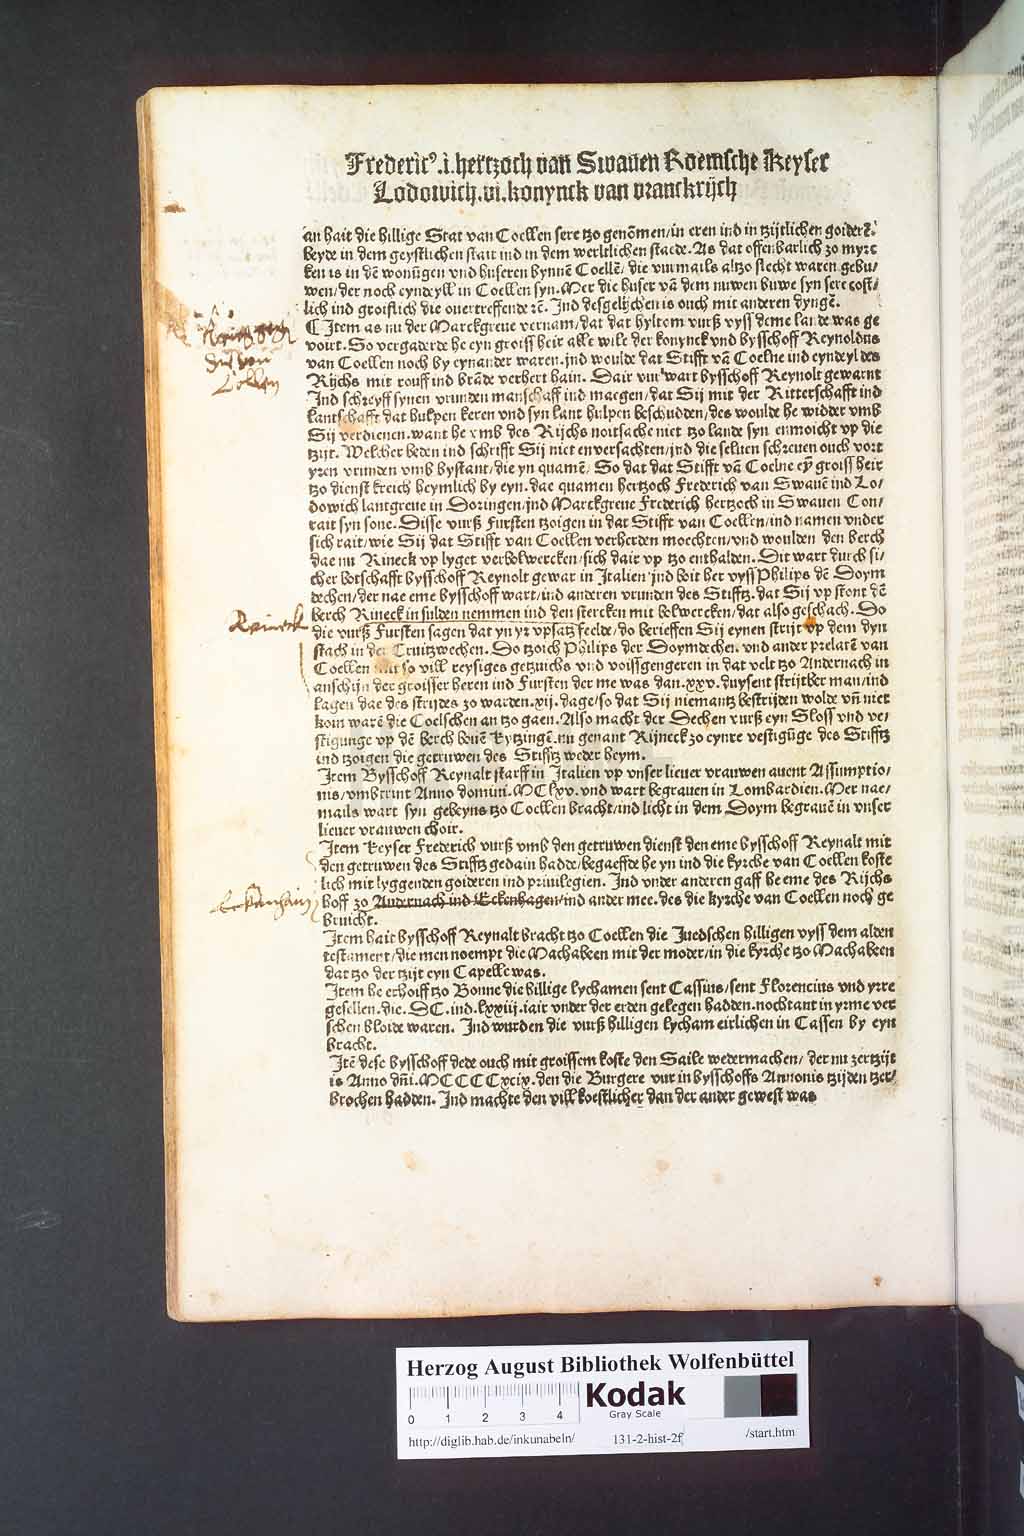 Frederic⁹.i.hertzoch van Swaven Roemsche Keyser
Lodowich.vi.konynck van vranckrijch
an hait die hillige Stat van Coellen sere tzo genōmen/in eren ind in tzijtlichen goiderē.
beyde in dem geystlichen stait ind in dem werltlichen staede. As dat offenbarlich zo myrc
ken is in dē wonūgen vnd huseren bynnē Coellē/die vurmails altzo slecht waren gebu/
wen/der noch eyndeyll in Coellen syn. Mer die huser vā dem nuwen buwe syn sere cost/
lich ind groislich die overtreffende rē. Ind desgelijchen is ouch mit anderen dyngē.
C Item as nu der Marckgreve vernam/dat dat hyltom vurß vyss deme lande was ge
voirt. So vergaderde he eyn groiss heir alle wile der konynck vnd bysschoff Reynoldus
van Coellen noch by eynander waren.ind woulde dat Stifft vā Coelne ind eyndeyl des
Rijchs mit rouff ind brāde verhert hain. Dair vur wart bysschoff Reynolt gewarnt
Ind schreyff synen vrunden manschaff ind maegen/dat Sij mit der Ritterschafft ind
lantschafft dat hulpen keren vnd syn lant hulpen beschudden/des woulde he widder vmb
Sij verdienen.want he vmb des Rijchs noitsache niet tzo lande syn enmoicht vp die
tzijt. Welcher beden ind schrifft Sij niet enversachten/ind die selven schreven ouch vort
yren vrunden vmb bystant/die yn quamē/So dat dat Stifft vā Coelne eȳ groiss heir
tzo dienst kreich heymlich by eyn. dae quamen hertzoch Frederich van Swavē ind Lo/
dowich lantgreve in Doringen/ind Marckgreve Frederich hertzoch in Swaven Con/
rait syn sone. Disse vurß Fursten tzoigen in dat Stifft van Coellen/ind namen vnder
sich rait/wie Sij dat Stifft van Coellen verherden moechten/vnd woulden den berch
dae nu Rineck vp lyget verbolwercken/sich dair vp tzo enthalden. Dit wart durch si/
cher botschafft bysschoff Reynolt gewar in Italien ind boit her vyss Philips dē Doym
dechen/der nae eme bysschoff wart/ind anderen vrunden des Stifftz.dat Sij vp stont dē
berch Rineck in sulden nemmen ind den stercken mit bolwercken/dat also geschach. So
die vurß Fursten sagen dat yn yr vpsatz feelde/do berieffen Sij eynen strijt vp dem dyn
stach in der Cruitzwechen. So tzoich Philips der Doymdechen. vnd ander prelatē van
Coellen mit so vill reysiges getzuichs vnd voissgengeren in dat velt tzo Andernach in
anschijn der groisser heren ind Fursten der me was dan.xxv.duysent strijtber man/ind
lagen dae des strijdes zo warden.xij.dage/so dat Sij niemantz bestrijden wolde vn̄ niet
koin warē die Coelschen an tzo gaen. Also macht der Dechen vurß eyn Sloss vnd ve/
stigunge vp dē berch bovē Rytzingē.nu genant Rijneck zo eynre vestigūge des Stifftz
ind tzoigen die getruwen des Stifftz weder heym.
Item Bysschoff Reynalt starff in Italien vp vnser liever vrauwen avent Assumptio/
nis/vmbtrint Anno domini.MClxv.vnd wart begraven in Lombardien. Mer nae/
mails wart syn gebeyns tzo Coellen bracht/ind licht in dem Doym begravē in vnser
liever vrauwen choir.
Item Keyser Frederich vurß vmb den getruwen dienst den eme bysschoff Reynalt mit
den getruwen des Stifftz gedain hadde/begaeffde he yn ind die kyrche van Coellen koste
lich mit lyggenden goideren ind privilegien. Ind vnder anderen gaff he eme des Rijchs
hoff zo Andernach ind Eckenhagen/ind ander mee. des die kyrche van Coellen noch ge
bruicht.
Item hait bysschoff Reynalt bracht tzo Coellen die Juedschen hilligen vyss dem alden
testament/die men noempt die Machabeen mit der moder/in die kyrche tzo Machabeen
dat tzo der tzijt eyn Capelle was.
Item he erhoiff tzo Bonne die hillige lychamen sent Cassius/sent Florencius vnd yrre
gesellen.die.DC.ind.lxxiij.iair vnder der erden gelegen hadden.nochtant in yrme ver
schen bloide waren. Ind wurden die vurß hilligen lycham eirlichen in Cassen by eyn
bracht.
Itē dese bysschoff dede ouch mit groissem koste den Saile wedermachen/der nu zertzijt
is Anno dn̄i.MCCCCxcix.den die Burgere vur in bysschoffs Annonis tzijden tzer/
brochen hadden. Ind machte den vill koestlicher dan der ander gewest was
Coellen
Reineck
Eckenhain
Herzog August Bibliothek Wolfenbüttel
0 1 2 3 4
Kodak
Gray Scale
http://diglib.hab.de/inkunabeln/ 131-2-hist-2f /start.htm